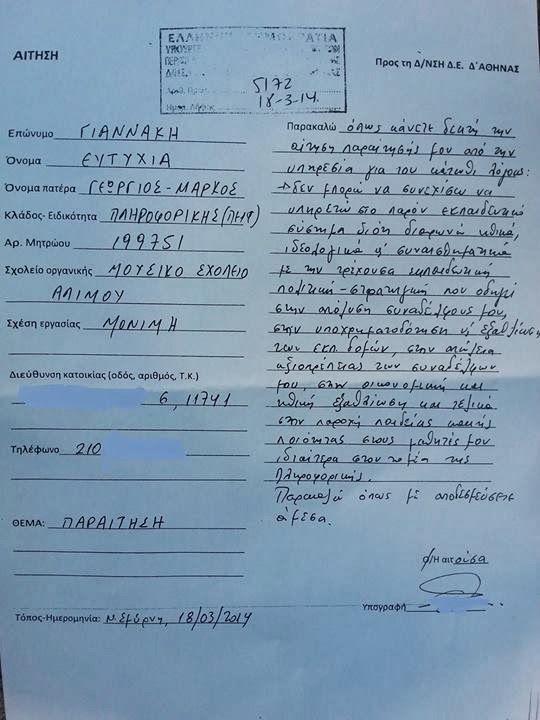 ΑΙΤΗΣΗ
ΕΛΛΗΝΙΚΗ ΔΗΜΟΚΡΑΤΙΑ
5172
18-3-14
Προς τη Δ/ΝΣΗ Δ.Ε. Δ΄ΑΘΗΝΑΣ
Επώνυμο ΓΙΑΝΝΑΚΗ
Όνομα ΕΥΤΥΧΙΑ
Όνομα πατέρα ΓΕΩΡΓΙΟΣ-ΜΑΡΚΟΣ
Κλάδος- Ειδικότητα ΠΛΗΡΟΦΟΡΙΚΗΣ (ΠΕ19)
Αρ. Μητρώου 199751
Σχολείο οργανικής ΜΟΥΣΙΚΟ ΣΧΟΛΕΙΟ
ΑΛΙΜΟΥ
Σχέση εργασίας ΜΟΝΙΜΗ
Διεύθυνση κατοικίας (οδός, αριθμός, Τ.Κ.)
6, 11741
Τηλέφωνο 210
ΘΕΜΑ: ΠΑΡΑΙΤΗΣΗ
Τόπος-Ημερομηνία: Ν. Σμύρνη, 18/03/2014
Παρακαλώ όπως κάνετε δεκτή την
αίτηση παραίτησής μου από την
υπηρεσία για τον κάτωθι λόγο:
δεν μπορώ να συνεχίσω να
υπηρετώ στο παρόν εκπαιδευτικό
σύστημα διότι διαφωνώ ηθικά,
ιδεολογικά & συναισθηματικά
με την τρέχουσα εκπαιδευτική
πολιτική-στρατηγική που οδηγεί
στην απόλυση συναδέλφους μου,
στην υποχρηματοδότηση & εξαθλίωση
των εκπ. δομών, στην απώλεια
αξιοπρέπειας των συναδέλφων
μου, στην οικονομική και
ηθική εξαθλίωση και τελικά
στην παροχή παιδείας κακής
ποιότητας στους μαθητές μου
ιδιαίτερα στον τομέα της
Πληροφορικής.
Παρακαλώ όπως με αποδεσμεύσετε
άμεσα.
Ο/Η αιτούσα
Υπογραφή